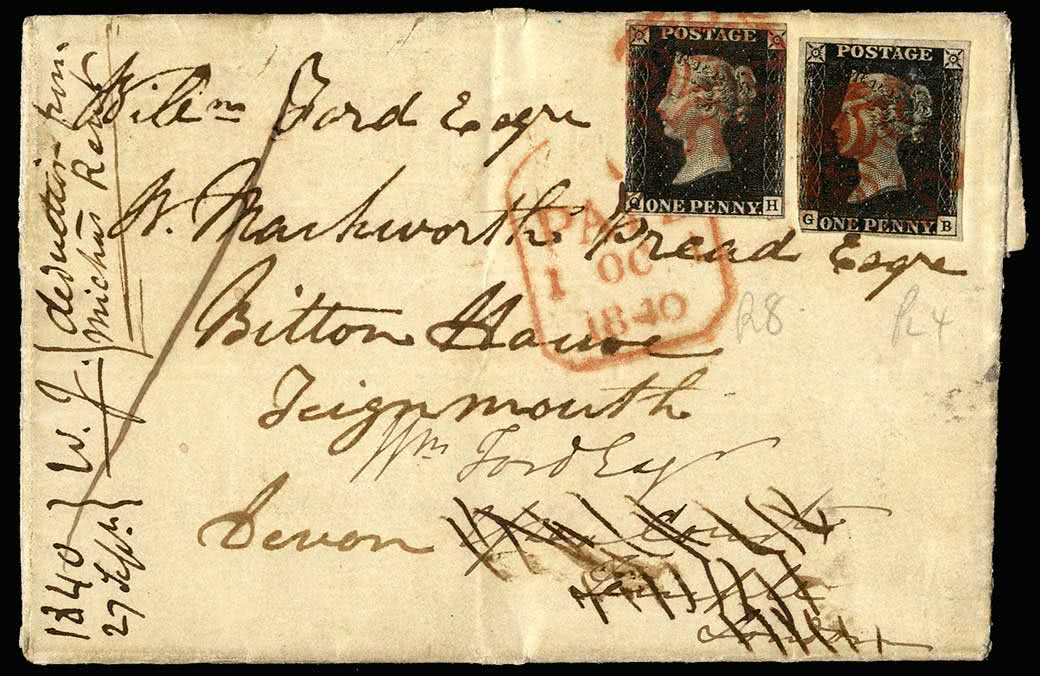 POSTAGE
ONE PENNY
H
POSTAGE
G ONE PENNY B
Willm Ford Esqre
W. Mackworth Praed Esqre
Bitton House
Teignmouth
Wm Ford Esqr
Devon
PAID
1 OC
1840
R8
R4
1840
27 Septr.
W. F.
deduction from
Michs Rent